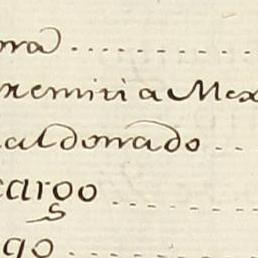 ora
remiti a Mex
aldonado
cargo
go